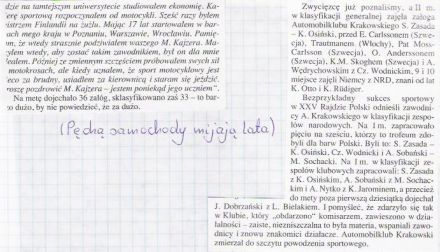 dzie na tamtejszym uniwersytecie studiowałem ekonomię. Ka-
erę sportową rozpocząłem od motocykli. Sześć razy byłem
istrzem Finlandii na żużlu. Mając 17 lat startowałem w bar-
ach mego kraju w Poznaniu, Warszawie, Wrocławiu. Pamię-
m, że wtedy strasznie podziwiałem waszego M. Kajzera. Ma-
yłem wtedy, aby zostać takim zawodnikiem, był on dla mnie
Później ze zmiennym szczęściem próbowałem swych sił
motokrosach, ale kiedy uznałem, że sport motocyklowy jest
co za brudny, usiadłem za kierownicą i staram się dościgł.
roszę pozdrowić M. Kajzera – jestem poniekąd jego uczniem".
Na metę dojechało 36 załóg, sklasyfikowano zaś 33 – to bar-
o dużo, by nie powiedzieć, że za dużo.
(Pędzą samochody mijają lata)
Zwycięzcę już poznaliśmy, a II m.
w klasyfikacji generalnej zajęła załoga
Automobilklubu Krakowskiego S. Zasada
– K. Osiński, przed E. Carlssonem (Szwe-
cja), Trautmanem (Włochy), Pat Moss-
Carlsson (Szwecja), O. Anderssonem
(Szwecja), K.M. Skoghem (Szwecja) i A.
Wędrychowskim z Cz. Wodnickim, 9 i 10
miejsce zajęli Niemcy z NRD, znani od lat
K. Otto i K. Rüdiger.
Bezprzykładny sukces sportowy
w XXV Rajdzie Polski odnieśli zawodni-
cy A. Krakowskiego w klasyfikacji zespo-
łów narodowych. Na I m. zapracowało
pięciu na sześciu, którzy to trofeum zdo-
byli dla barw Polski. Byli to: S. Zasada –
K. Osiński, Cz. Wodnicki i A. Sobański –
M. Sochacki. Na I m. w klasyfikacji ze-
społów klubowych zapracowali: S. Zasada
z K. Osińskim, A. Sobański z M. Sochac-
kim i A. Nytko z K. Jarominem, a przecież
do mety poza pierwszą dziesiątką dojechał
J. Dobrzański z L. Bielakiem. I pomyśleć, że zdarzyło się tak
w Klubie, który „obdarzono" komisarzem, zawieszono w dzia-
łalności – zaiste, niezniszczalna to była materia, wspaniali zawo-
dnicy i znowu znakomici działacze. Automobilklub Krakowski
zmierzał do szczytu powodzenia sportowego.